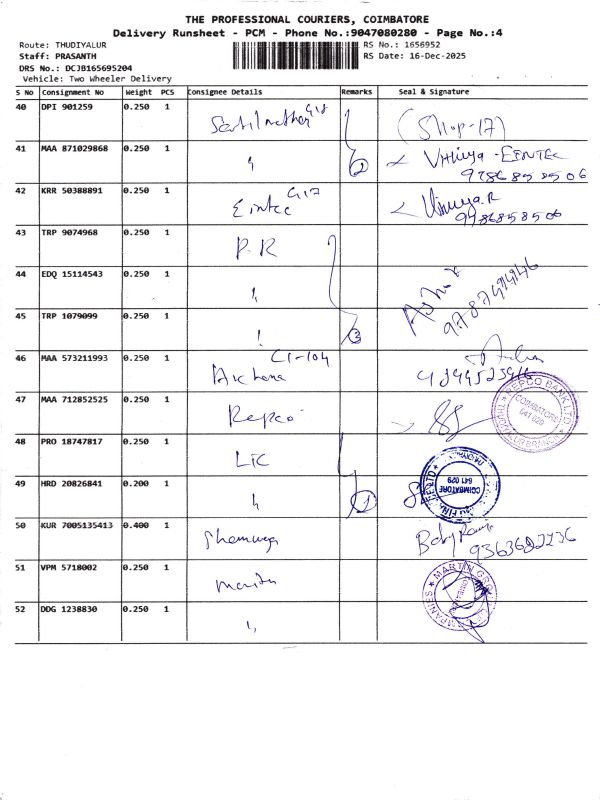 THE PROFESSIONAL COURIERS, COIMBATORE
Delivery Runsheet - PCM - Phone No.:9047080280 - Page No.:4
Route: THUDIYALUR RS No.: 1656952
Staff: PRASANTH RS Date: 16-Dec-2025
DRS No.: DCJB165695204
Vehicle: Two Wheeler Delivery
S No Consignment No Weight PCS Consignee Details Remarks Seal & Signature
40 DPI 901259 0.250 1 G18 (Shop-17)
41 MAA 871029868 0.250 1 " 2
42 KRR 50388891 0.250 1 Eintec G17 9786858506
43 TRP 9074968 0.250 1 P.R
44 EDQ 15114543 0.250 1 "
45 TRP 1079099 0.250 1 " 3
46 MAA 573211993 0.250 1 Archana C1-104
47 MAA 712852525 0.250 1 Repco REPCO BANK LTD. COIMBATORE 641 029
48 PRO 18747817 0.250 1 LIC
49 HRD 20826841 0.200 1 " 1 COIMBATORE 641 029
50 KUR 7005135413 0.400 1
51 VPM 5718002 0.250 1 Martin MARTIN GROUP
52 DDG 1238830 0.250 1 "